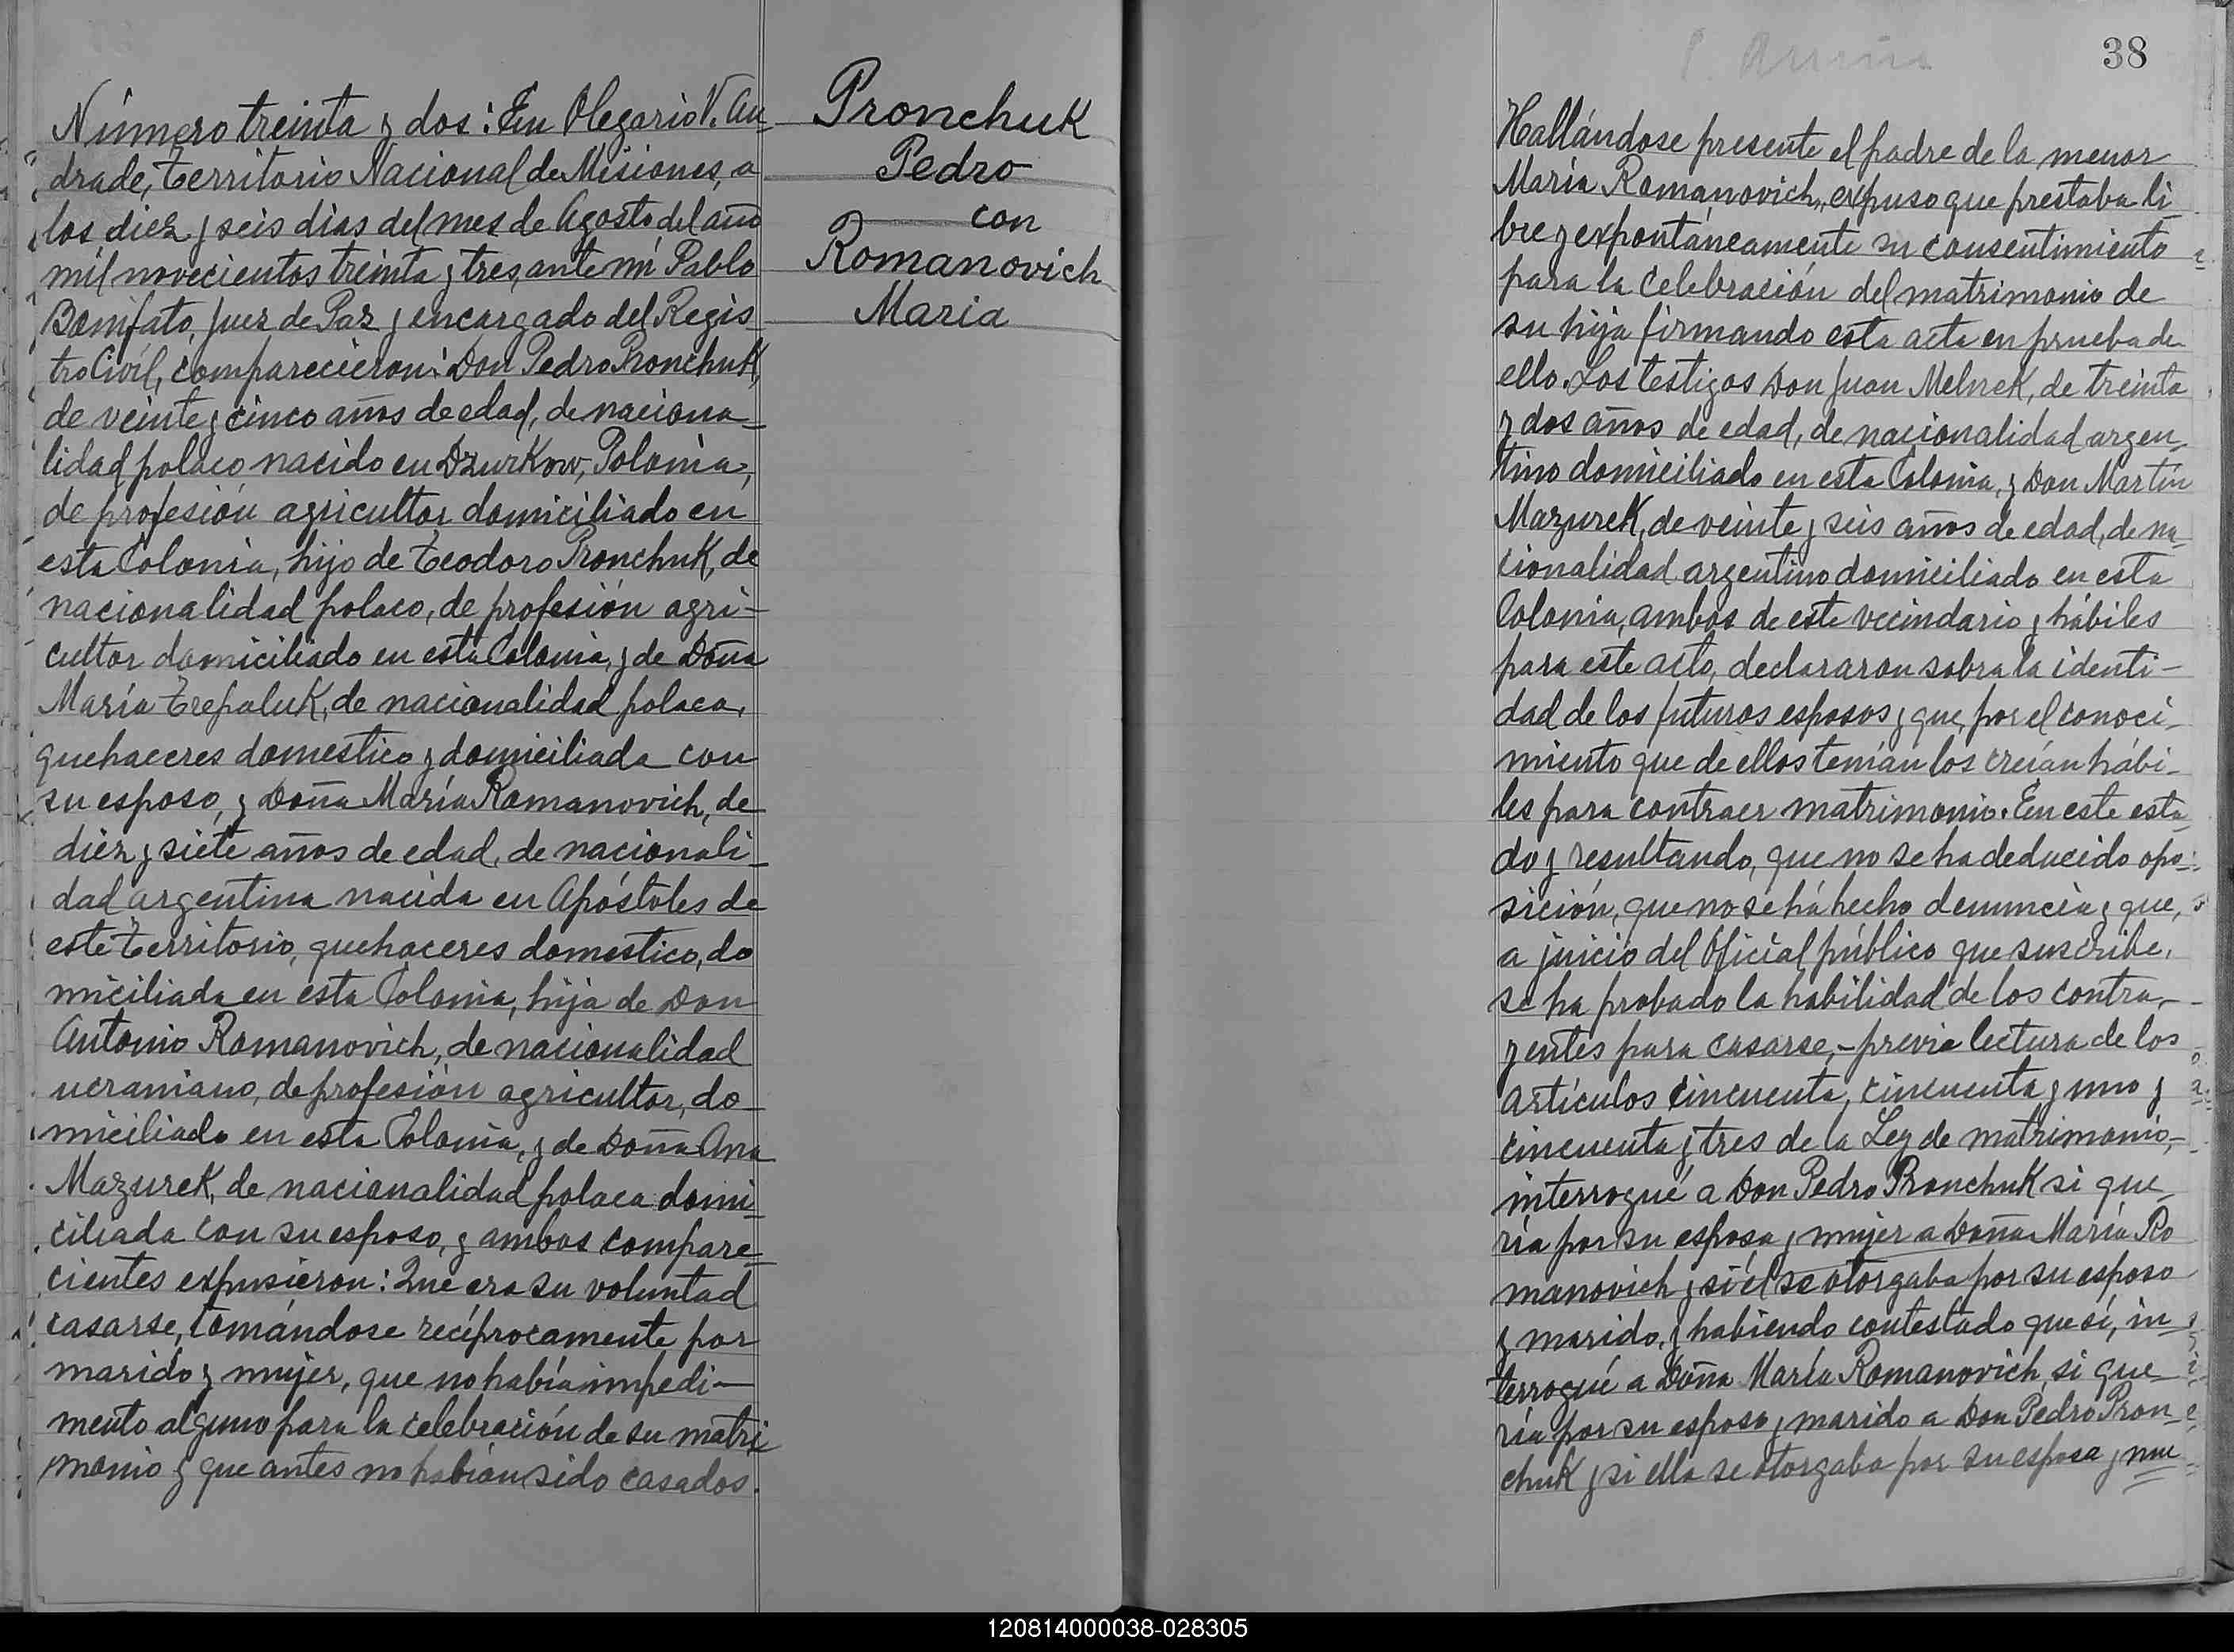 Número treinta y dos: En Olegario V. An-
drade, Territorio Nacional de Misiones, a
los diez y seis dias del mes de Agosto del año
mil novecientos treinta y tres, ante mí Pablo
Bonifato, Juez de Paz y encargado del Regis-
tro Civil, comparecieron: Don Pedro Pronchuk,
de veinte y cinco años de edad, de naciona-
lidad polaco nacido en Dzurkow, Polonia,
de profesión agricultor domiciliado en
esta Colonia, hijo de Teodoro Pronchuk, de
nacionalidad polaco, de profesión agri-
cultor domiciliado en esta Colonia, y de Doña
María Trepaluk, de nacionalidad polaca,
quehaceres domestico y domiciliada con
su esposo, y Doña María Romanovich, de
diez y siete años de edad, de nacionali-
dad argentina nacida en Apóstoles de
este Territorio, quehaceres domestico, do
miciliada en esta Colonia, hija de Don
Antonio Romanovich, de nacionalidad
ucraniano, de profesión agricultor, do-
miciliado en esta Colonia, y de Doña Ana
Mazurek, de nacionalidad polaca domi-
ciliada con su esposo, y ambos compare-
cientes expusieron: Que era su voluntad
casarse, tomándose recíprocamente por
marido y mujer, que no había impedi-
mento alguno para la celebración de su matri
monio y que antes no habían sido casados.
Pronchuk
Pedro
con
Romanovich
Maria
38
Hallándose presente el padre de la menor
María Romanovich, expuso que prestaba li
bre y expontáneamente su consentimiento
para la celebración del matrimonio de
su hija firmando esta acta en prueba de
ello. Los testigos Don Juan Melnek, de treinta
y dos años de edad, de nacionalidad argen-
tino domiciliado en esta Colonia, y Don Martín
Mazurek, de veinte y seis años de edad, de na-
cionalidad argentino domiciliado en esta
Colonia, ambos de este vecindario y hábiles
para este acto, declararon sobra la identi-
dad de los futuros esposos y que, por el conoci-
miento que de ellos tenían los creían hábi-
les para contraer matrimonio. En este esta-
do y resultando, que no se ha deducido opo-
sición, que no se há hecho denuncia y que,
a juicio del Oficial público que suscribe,
se ha probado la habilidad de los contra-
yentes para casarse,- previa lectura de los
artículos cincuenta, cincuenta y uno y
cincuenta y tres de la Ley de matrimonio,-
interrogué a Don Pedro Pronchuk si que-
ría por su esposa y mujer a Doña María Ro
manovich y si él se otorgaba por su esposo
y marido, y habiendo contestado que sí, in-
terrogué a Doña María Romanovich, si que-
ría por su esposo y marido a Don Pedro Pron-
chuk y si ella se otorgaba por su esposa y mu-
120814000038-028305